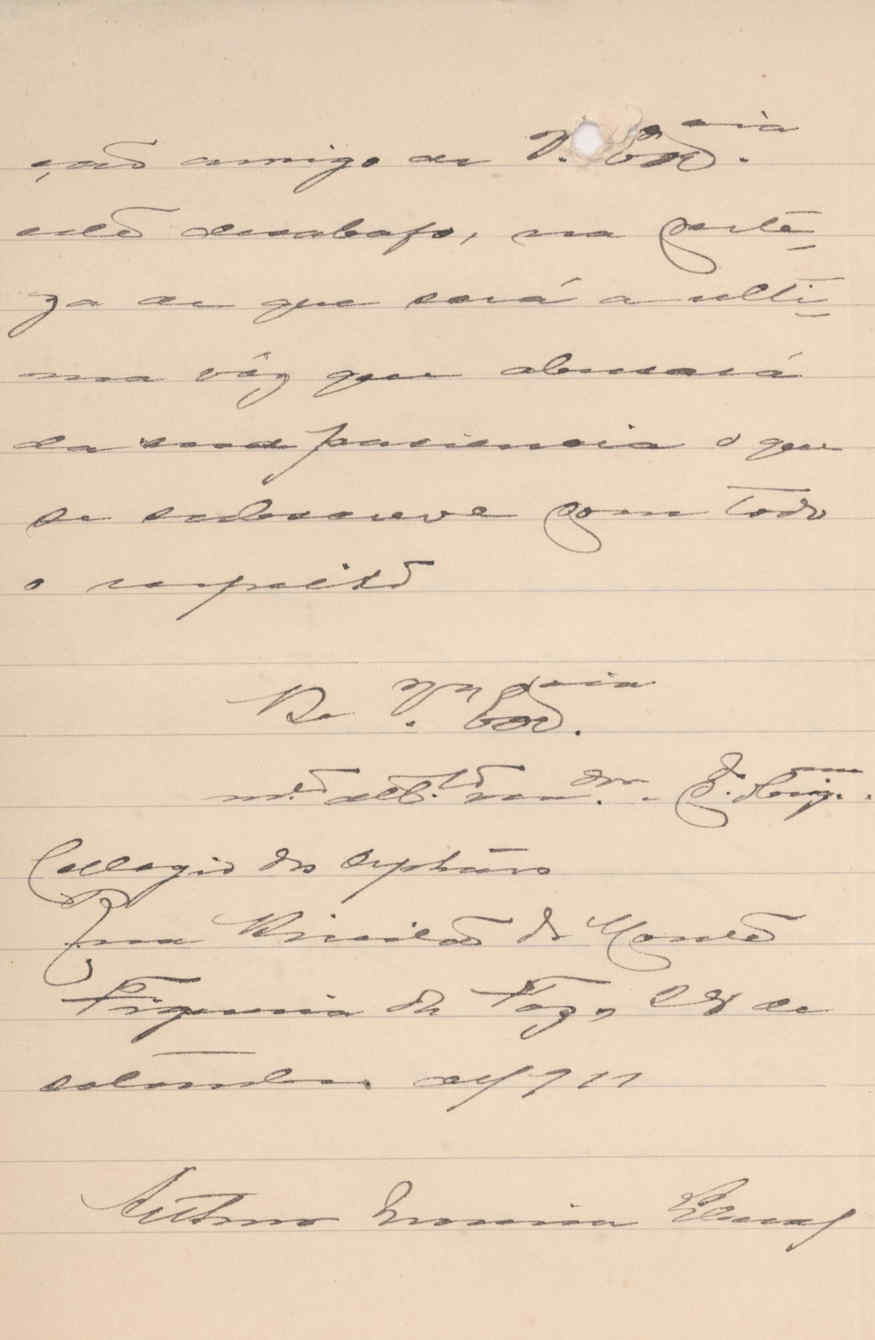 ção amigo de V. Exᶜⁱᵃ.
este desabafo, na certe-
za de que será a ulti-
ma vêz que abusará
da sua paciencia o que
se subscreve com todo
o respeito
De V. Exᶜⁱᵃ.
mᵗᵒ attᵗᵒ venᵈᵒʳ.
Collegio dos Orphãos
Rua Visconde da
Figueira da Foz, 28 de
setembro de 1911
Arthur